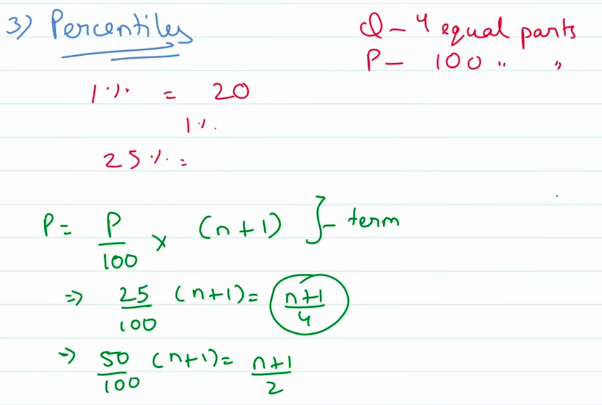 3) Percentiles
Q - 4 equal parts
P - 100 " "
1% = 20
1%
25% =
P = P/100 × (n+1) } - term
⇒ 25/100 (n+1) = n+1/4
→ 50/100 (n+1) = n+1/2